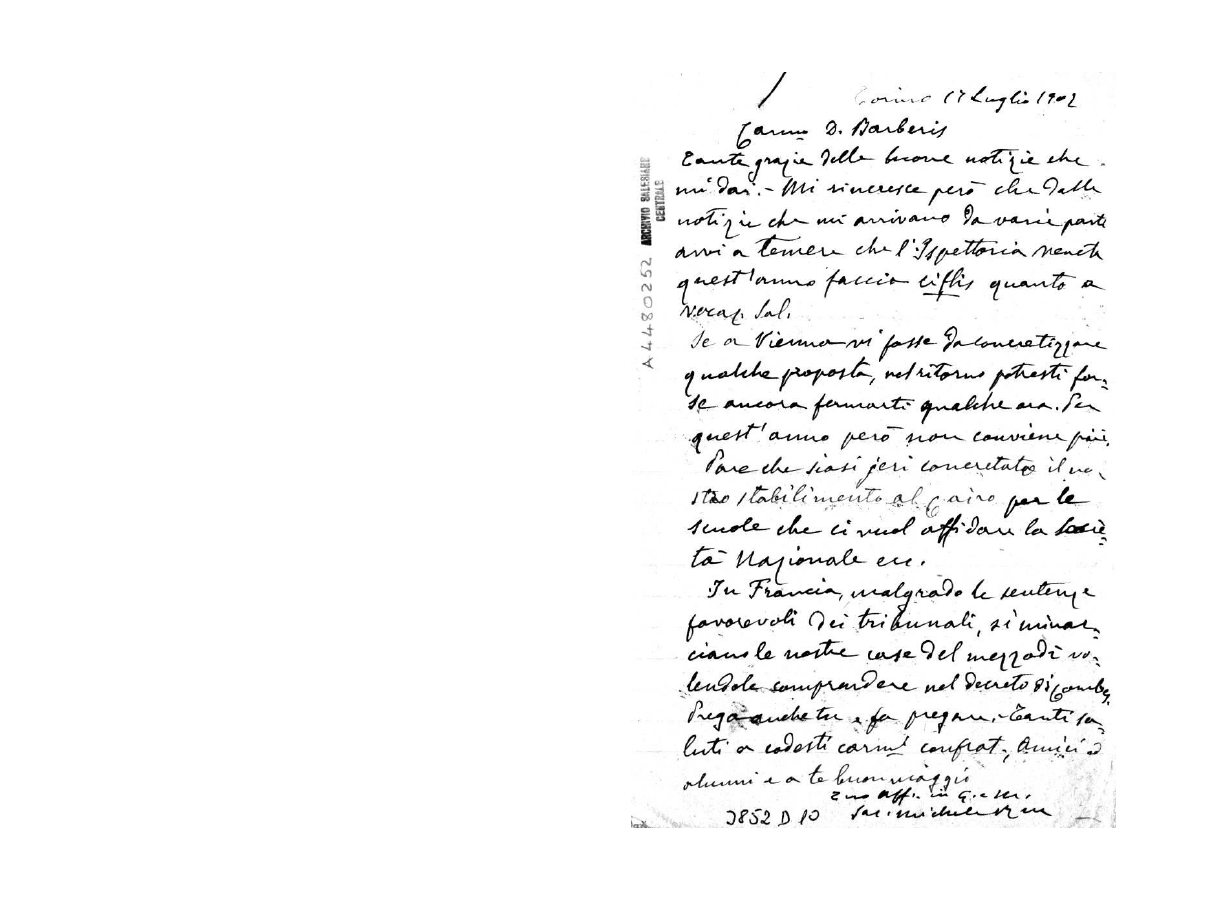 Torino 17 Luglio 1902
Carmo D. Barberis
Tante grazie delle buone notizie che
mi dai. - Mi rincresce però che dalle
notizie che mi arrivano da varie parti
avvi a temere che l'Ispettoria veneta
quest'anno faccia ciflis quanto a
vocaz. Sal.
Se a Vienna vi fosse da concretizzare
qualche proposta, nel ritorno potresti for-
se ancora fermarti qualche ora. Per
quest'anno però non conviene più.
Pare che siasi jeri concretato il no-
stro stabilimento al Cairo per le
scuole che ci vuol affidare la Socie-
tà Nazionale ecc.
In Francia, malgrado le sentenze
favorevoli dei tribunali, si minac-
ciano le nostre case del mezzodì vo-
lendole comprendere nel decreto di Combes.
Prega anche tu e fa pregare. - Tanti sa-
luti a codesti carmi confrat, Amici ed
alunni e a te buon viaggio
Tuo aff. in G. e M.
Sac. Michele Rua
3852 D 10
A4480252
ARCHIVIO SALESIANO
CENTRALE